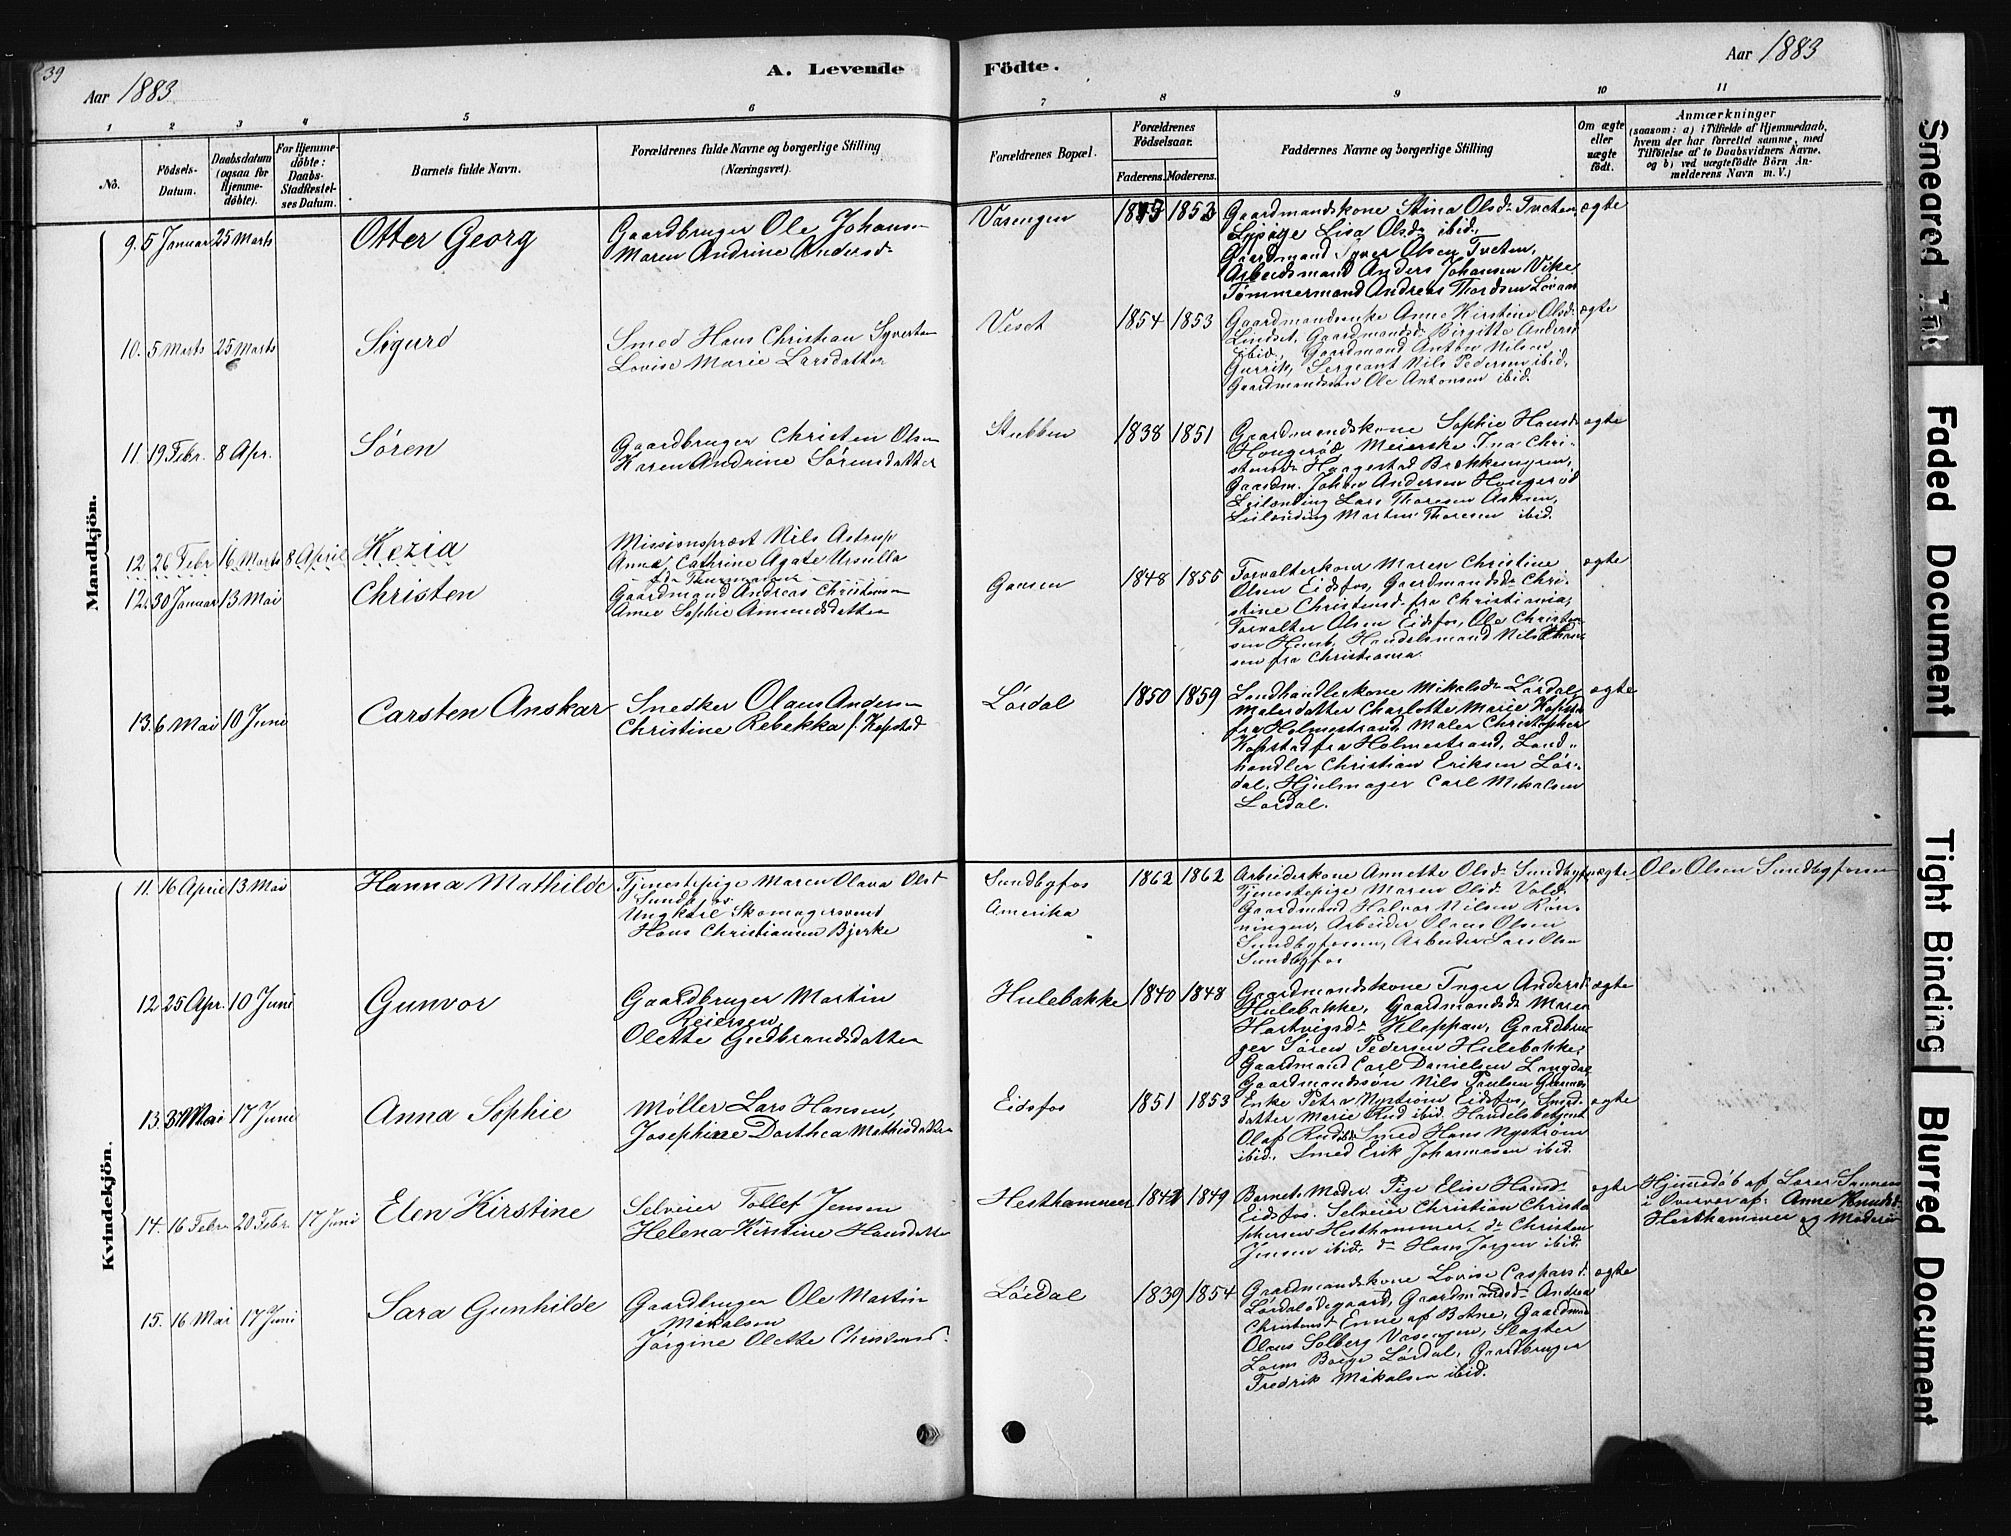 39
Aar 1883
A. Levende
Födte.
Aar 1883
1 2 3 4 5 6 7 8 9 10 11
No.
Födsels-Datum.
Daabsdatum (ogsaa for Hjemme-döbte).
For Hjemme-döbte: Daabs-Stadfæstel-ses Datum.
Barnets fulde Navn.
Forældrenes fulde Navne og borgerlige Stilling (Næringsvei).
Forældrenes Bopæl.
Forældrenes Födselsaar.
Faderens. Moderens.
Faddernes Navne og borgerlige Stilling
Om ægte eller uægte födt.
Anmærkninger
(saasom: a) i Tilfælde af Hjemmedaab,
hvem der har forrettet samme, med
Tilföielse af to Daabsvidners Navne,
og b) ved uægtefödte Börn An-
melderens Navn m. V.)
Mandkjön.
9. 5 Januar 25 Marts
Otter Georg
Gaardbruger Ole Johans
Maren Andrine Andersd
Vasengen
1853
Gaardmandskone Stina Olsd Tveten
Lisa Olsd ibid.
Gaardmand Syver Olsen Tveten,
Arbeidsmand Anders Johansen Vike
Tømmermand Andreas Thordsen
ægte
10. 5 Marts 25 Marts
Sigurd
Smed Hans Christian Syvertsen
Lovise Marie Larsdatter
Veset
1854 1853
Gaardmandsenke Anne Kirstine Olsd
Lindset, Gaardmandsd Birgitte Andersd
ibid., Gaardmand Anton Nilsen
Sergeant Nils Pedersen ibid,
Gaardmandssøn Ole Antonsen ibid.
ægte
11. 19 Febr. 8 Apr.
Søren
Gaardbruger Christen Olsen
Karen Andrine Sørensdatter
Stubben
1838 1851
Gaardmandskone Sophie Hansd
Hougerød Meierske Ina Chri-
stensd Haagestad
Gaardm. Johan Andersen Hougerød
Leilænding Lars Thoresen Asknes,
Leilænding Martin Thoresen ibid.
ægte
12 26 Febr 16 Marts 8 April
Kezia
Missionsprest Nils Astrup
Anna Cathrine Agate Ursulla
12. 30 Januar 13 Mai
Christen
Gaardmand Andreas Christensen
Anne Sophie Aimundsdatter
Gausen
1848 1855
Forvalterkone Maren Christine
Olsen Eidsfos, Gaardmandsd Chri-
stine Christensd fra Christiania,
Forvalter Olsen Eidsfos, Ole Christen
sen Handelsmand Nils
sen fra Christiania
ægte
13. 6 Mai 10 Juni
Carsten Anskar
Snedker Olaus Andersen
Christine Rebekka f. Kopstad
Lørdal
1850 1859
Landhandlerkone Mikalsd Lørdal,
Malerdatter Charlotte Marie Kopstad
fra Holmestrand, Maler Christopher
Kopstad fra Holmestrand, Land-
handler Christian Eriksen Lør-
dal, Hjulmager Carl Mikalsen
Lørdal.
ægte
Kvindekjön.
11. 16 April 13 Mai
Hanna Mathilde
Tjenestepige Maren Olava Olsd
Sundbyfos
Ungkarl Skomagersvend
Hans Christiansen Bjerke
Sundbyfos
Amerika
1862 1862
Arbeiderskone Annette Olsd Sundbyfos
Tjenestepige Maren Olsd Vold,
Gaardmand Halvor Nilsen Røn-
ningen, Arbeider Olaus Olsen
Sundbyfossen, Arbeider Lars Olsen
Sundbyfos
uægte
Ole Olsen Sundbyfossen
12 25 Apr. 10 Juni
Gunvor
Gaardbruger Martin
Reiersen,
Olette Gudbrandsdatter
Hulebakke
1840 1848
Gaardmandskone Inger Andersd
Hulebakke, Gaardmandsd Maren
Hartvigsd Kleppan, Gaardbru
ger Søren Pedersen Hulebakke,
Gaardmand Carl Danielsen Langdal
Gaardmandssøn Nils Paulsen
ægte
13. Mai 17 Juni
Anna Sophie
Møller Lars Hansen,
Josephine Dorthea Mathisdatter
Eidsfos
1851 1853
Enke Petra Nystrøm Eidsfos, Smed-
datter Marie Rud ibid. Handelsbetjent
Olaf Rud ibid Smed Hans Nystrøm
ibid, Smed Erik Johannesen ibid.
ægte
14. 16 Febr 20 Febr. 17 Juni
Elen Kirstine
Selveier Tollef Jensen
Helena Kirstine Hansdatter
Hesthammer
1849
Barnets Moder. Pige Elise Hansd
Eidsfos. Selveier Christian Christo
phersen Hesthammer, d Christen
Jensen ibid, d Hans Jørgen ibid.
ægte
Hjemmedøb af Lærer
i Overvær af: Anne Knudsd
Hesthammer og Moderen
15. 16 Mai 17 Juni
Sara Gunhilde
Gaardbruger Ole Martin
Mikalsen
Jørgine Olette Christensd.
Lørdal
1839 1854
Gaardmandskone Lovise Caspersd
Lørdalødegaard, Gaardmandsd Andrea
Christensd Enne af Botne, Gaardmd
Olaus Solberg Vasengen, Slagter
Lørdal, Gaardbruger
Fredrik Mikalsen ibid.
ægte
Smeared Ink
Faded Document
Tight Binding
Blurred Document